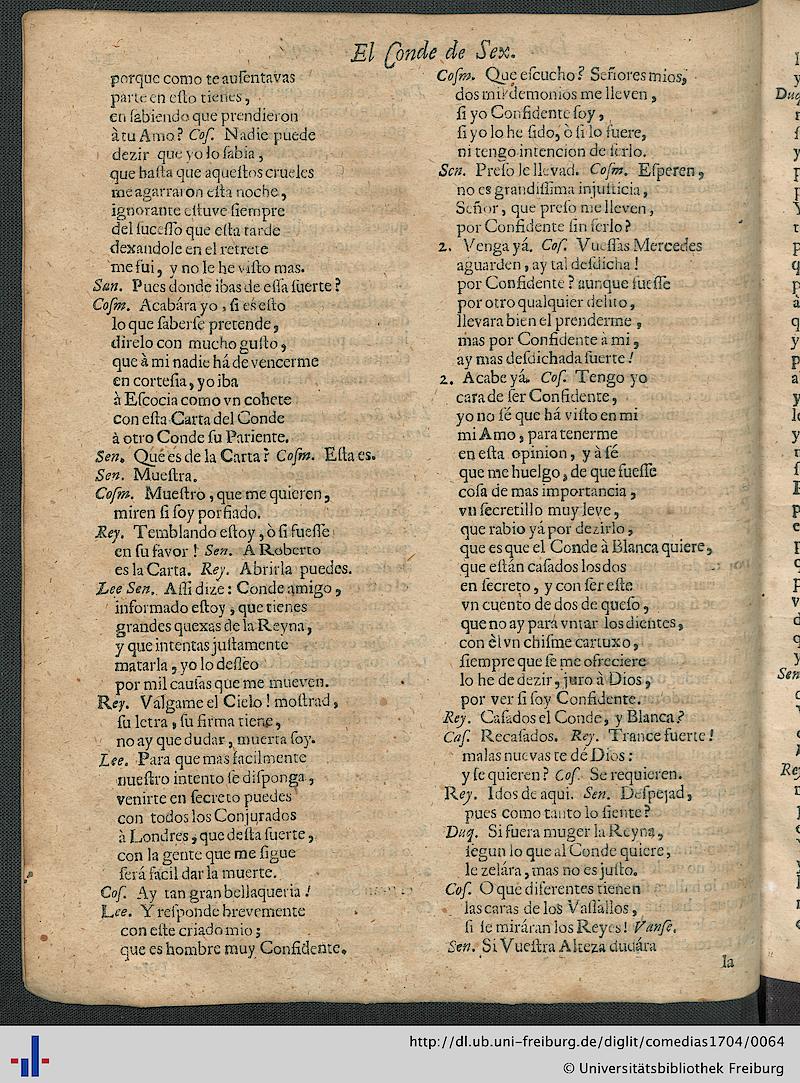 El Conde de Sex.
porque como te ausentavas
parte en eſto tienes,
en ſabiendo que prendieron
à tu Amo? Coſ. Nadie puede
dezir que yo lo ſabia,
que haſta que aqueſtos crueles
me agarraron eſta noche,
ignorante eſtuve ſiempre
del ſuceſſo que eſta tarde
dexandole en el retrete
me fui, y no le he viſto mas.
San. Pues donde ibas de eſſa ſuerte?
Coſm. Acabára yo, ſi es eſto
lo que ſaberſe pretende,
direlo con mucho guſto,
que à mi nadie há de vencerme
en corteſia, yo iba
à Eſcocia como vn cohete
con eſta Carta del Conde
à otro Conde ſu Pariente.
Sen. Qué es de la Carta? Coſm. Eſta es.
Sen. Mueſtra.
Coſm. Mueſtro, que me quieren,
miren ſi ſoy porfiado.
Rey. Temblando eſtoy, ò ſi fueſſe
en ſu favor! Sen. A Roberto
es la Carta. Rey. Abrirla puedes.
Lee Sen. Aſſi dize: Conde amigo,
informado eſtoy, que tienes
grandes quexas de la Reyna,
y que intentas juſtamente
matarla, yo lo deſſeo
por mil cauſas que me mueven.
Rey. Valgame el Cielo! moſtrad,
ſu letra, ſu firma tiene,
no ay que dudar, muerta ſoy.
Lee. Para que mas facilmente
nueſtro intento ſe diſponga,
venirte en ſecreto puedes
con todos los Conjurados
à Londres, que deſta ſuerte,
con la gente que me ſigue
ſerá facil dar la muerte.
Coſ. Ay tan gran bellaqueria!
Lee. Y reſponde brevemente
con eſte criado mio;
que es hombre muy Confidente.
Coſm. Que eſcucho? Señores mios,
dos mil demonios me lleven,
ſi yo Confidente ſoy,
ſi yo lo he ſido, ò ſi lo fuere,
ni tengo intencion de ſerlo.
Sen. Preſo le llevad. Coſm. Eſperen,
no es grandiſſima injuſticia,
Señor, que preſo me lleven,
por Confidente ſin ſerlo?
2. Venga yá. Coſ. Vueſſas Mercedes
aguarden, ay tal deſdicha!
por Confidente? aunque fueſſe
por otro qualquier delito,
llevara bien el prenderme,
mas por Confidente à mi,
ay mas deſdichada ſuerte!
2. Acabe yá. Coſ. Tengo yo
cara de ſer Confidente,
yo no ſé que há viſto en mi
mi Amo, para tenerme
en eſta opinion, y à fé
que me huelgo, de que fueſſe
coſa de mas importancia,
vn ſecretillo muy leve,
que rabio yá por dezirlo,
que es que el Conde à Blanca quiere,
que eſtán caſados los dos
en ſecreto, y con ſer eſte
vn cuento de dos de queſo,
que no ay para vntar los dientes,
con èl vn chiſme cartuxo,
ſiempre que ſe me ofreciere
lo he de dezir, juro à Dios,
por ver ſi ſoy Confidente.
Rey. Caſados el Conde, y Blanca?
Caſ. Recaſados. Rey. Trance fuerte!
malas nuevas te dé Dios:
y ſe quieren? Coſ. Se requieren.
Rey. Idos de aqui. Sen. Deſpejad,
pues como tanto lo ſiente?
Duq. Si fuera muger la Reyna,
ſegun lo que al Conde quiere,
le zelára, mas no es juſto.
Coſ. O que diferentes tienen
las caras de los Vaſſallos,
ſi ſe miráran los Reyes! Vanſe.
Sen. Si Vueſtra Alteza dudára
la
Duq
Sen
Rey
http://dl.ub.uni-freiburg.de/diglit/comedias1704/0064
© Universitätsbibliothek Freiburg